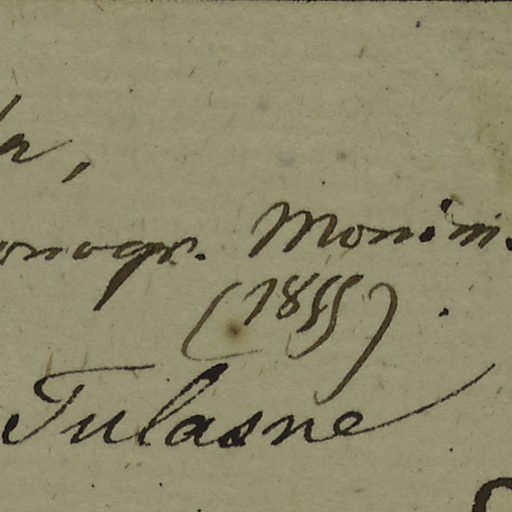 onogr. Monim.
(1855).
Tulasne